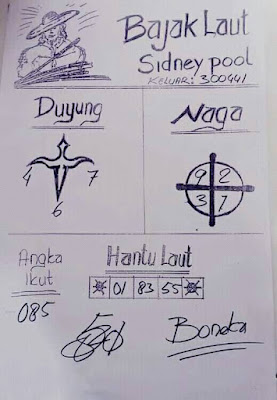 Bajak Laut
Sidney pool
KELUAR: 300441
Duyung
4 7
6
Naga
9 2
3 1
Angka
Ikut
085
Hantu Laut
01 83 55
Boneka